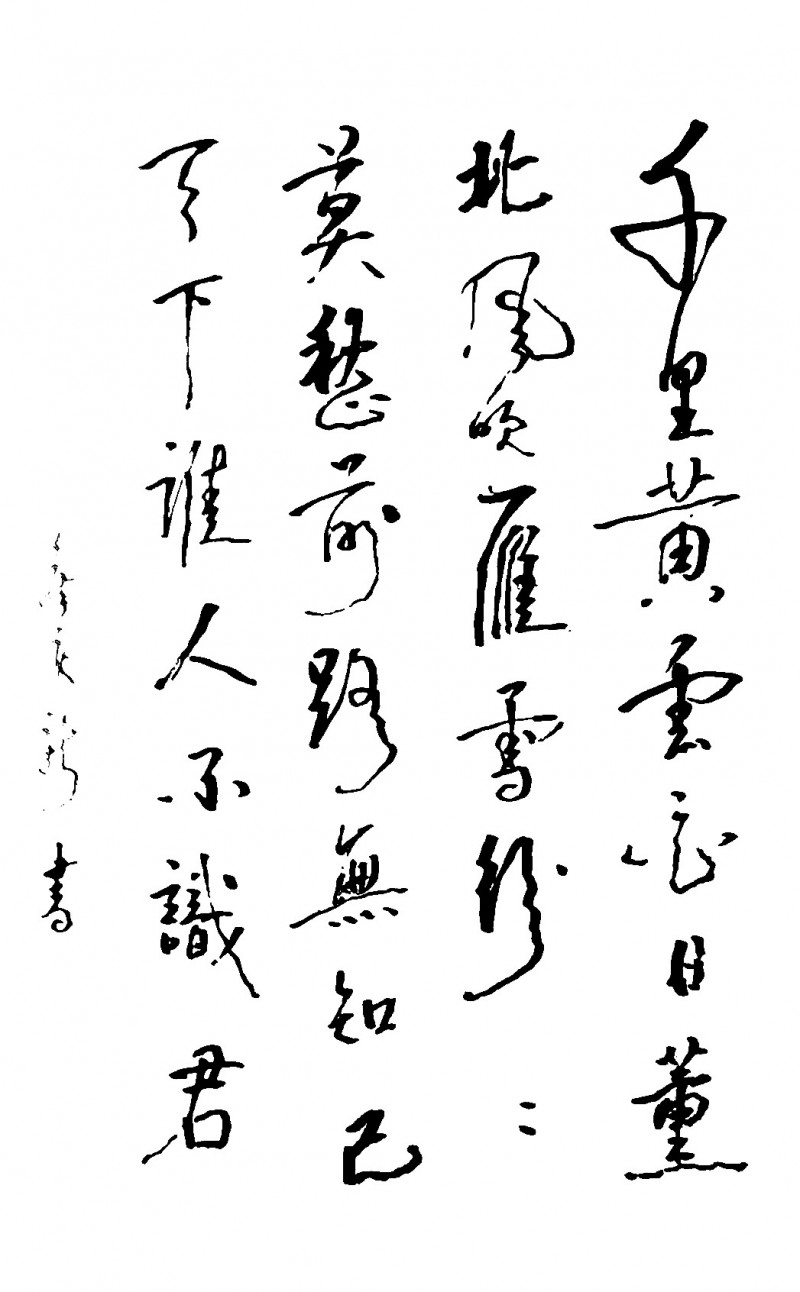 千里黄雲白日薰
北風吹雁雪紛〻
莫愁前路無知己
天下誰人不識君
癸亥 書